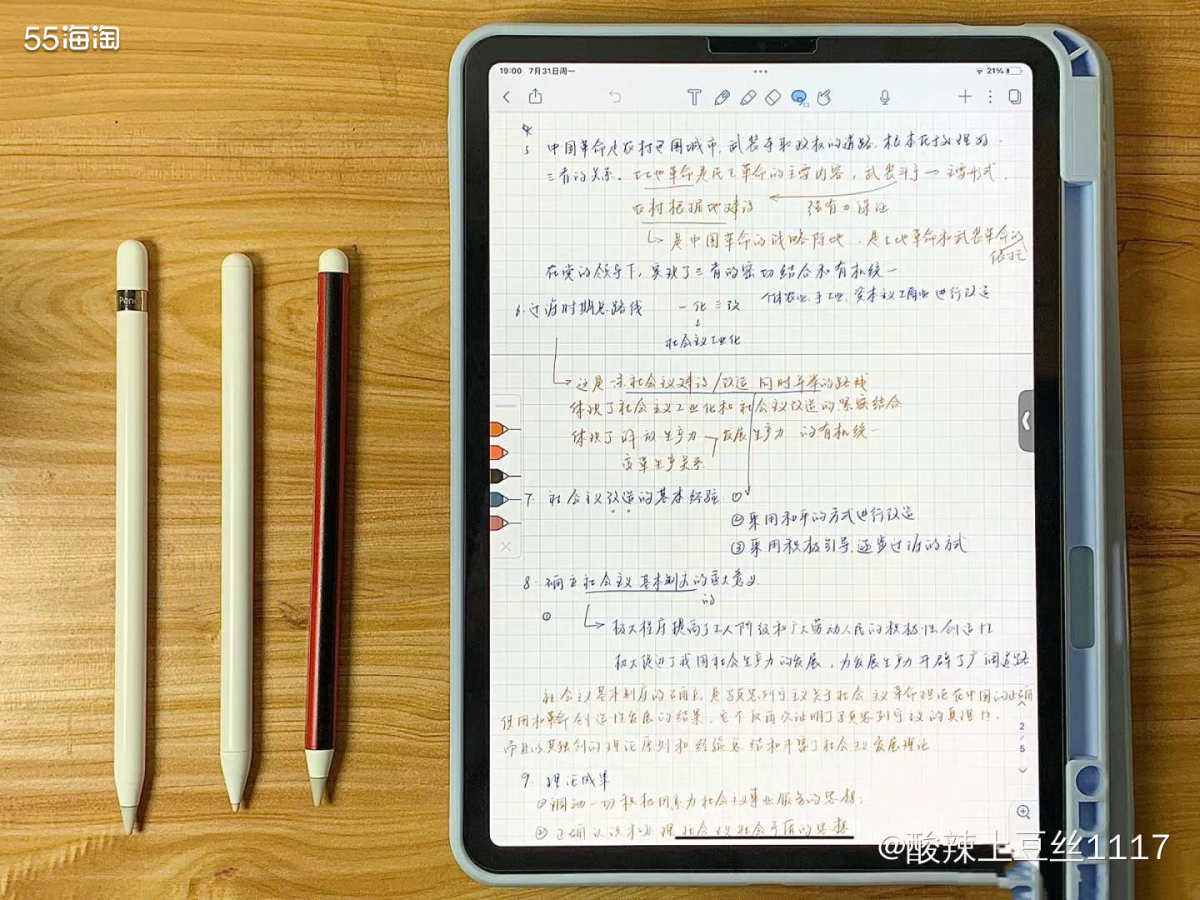 55海淘
19:00 7月31日周一
21%
5 中国革命是农村包围城市、武装夺取政权的道路,根本在于处理好
三者的关系。土地革命是民主革命的主要内容,武装斗争一主要形式.
农村根据地建设 强有力保证
是中国革命的战略阵地,是土地革命和武装革命的
依托
在党的领导下,实现了三者的密切结合和有机统一
6.过渡时期总路线 一化三改 个体农业、手工业、资本主义工商业进行改造
社会主义工业化
这是一条社会主义建设/改造同时并举的路线
体现了社会主义工业化和社会主义改造的紧密结合
体现了解放生产力 发展生产力 的有机统一
变革生产关系
7. 社会主义改造的基本经验 ①
②采用和平的方式进行改造
③采用积极引导、逐步过渡的方式
8. 确立社会主义基本制度的重大意义
的
①
极大程度提高了工人阶级和广大劳动人民的积极性创造性
极大促进了我国社会生产力的发展,为发展生产力开辟了广阔道路
社会主义基本制度的确立是马克思列宁主义关于社会主义革命理论在中国的正确
运用和革命创造性发展的结果,它不仅再次证明了马克思列宁主义的真理性,
而且以其独创的理论原则和经验总结和丰富了社会主义发展理论
2/5
9. 理论成果
①调动一切积极因素为社会主义事业服务的思想;
②正确认识和处理社会主义社会矛盾的思想
Penc
@酸辣土豆丝1117